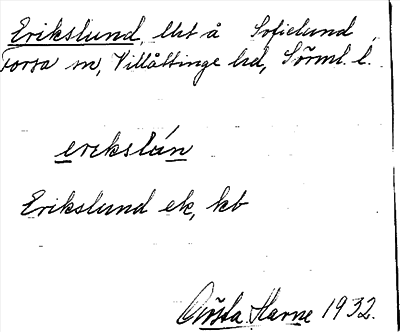 Erikslund, lht å Sofielund,
Forsa sn, Villåttinge hd, Sörml. l.
erekslán
Erikslund ek, kb
Gösta Harne 1932.